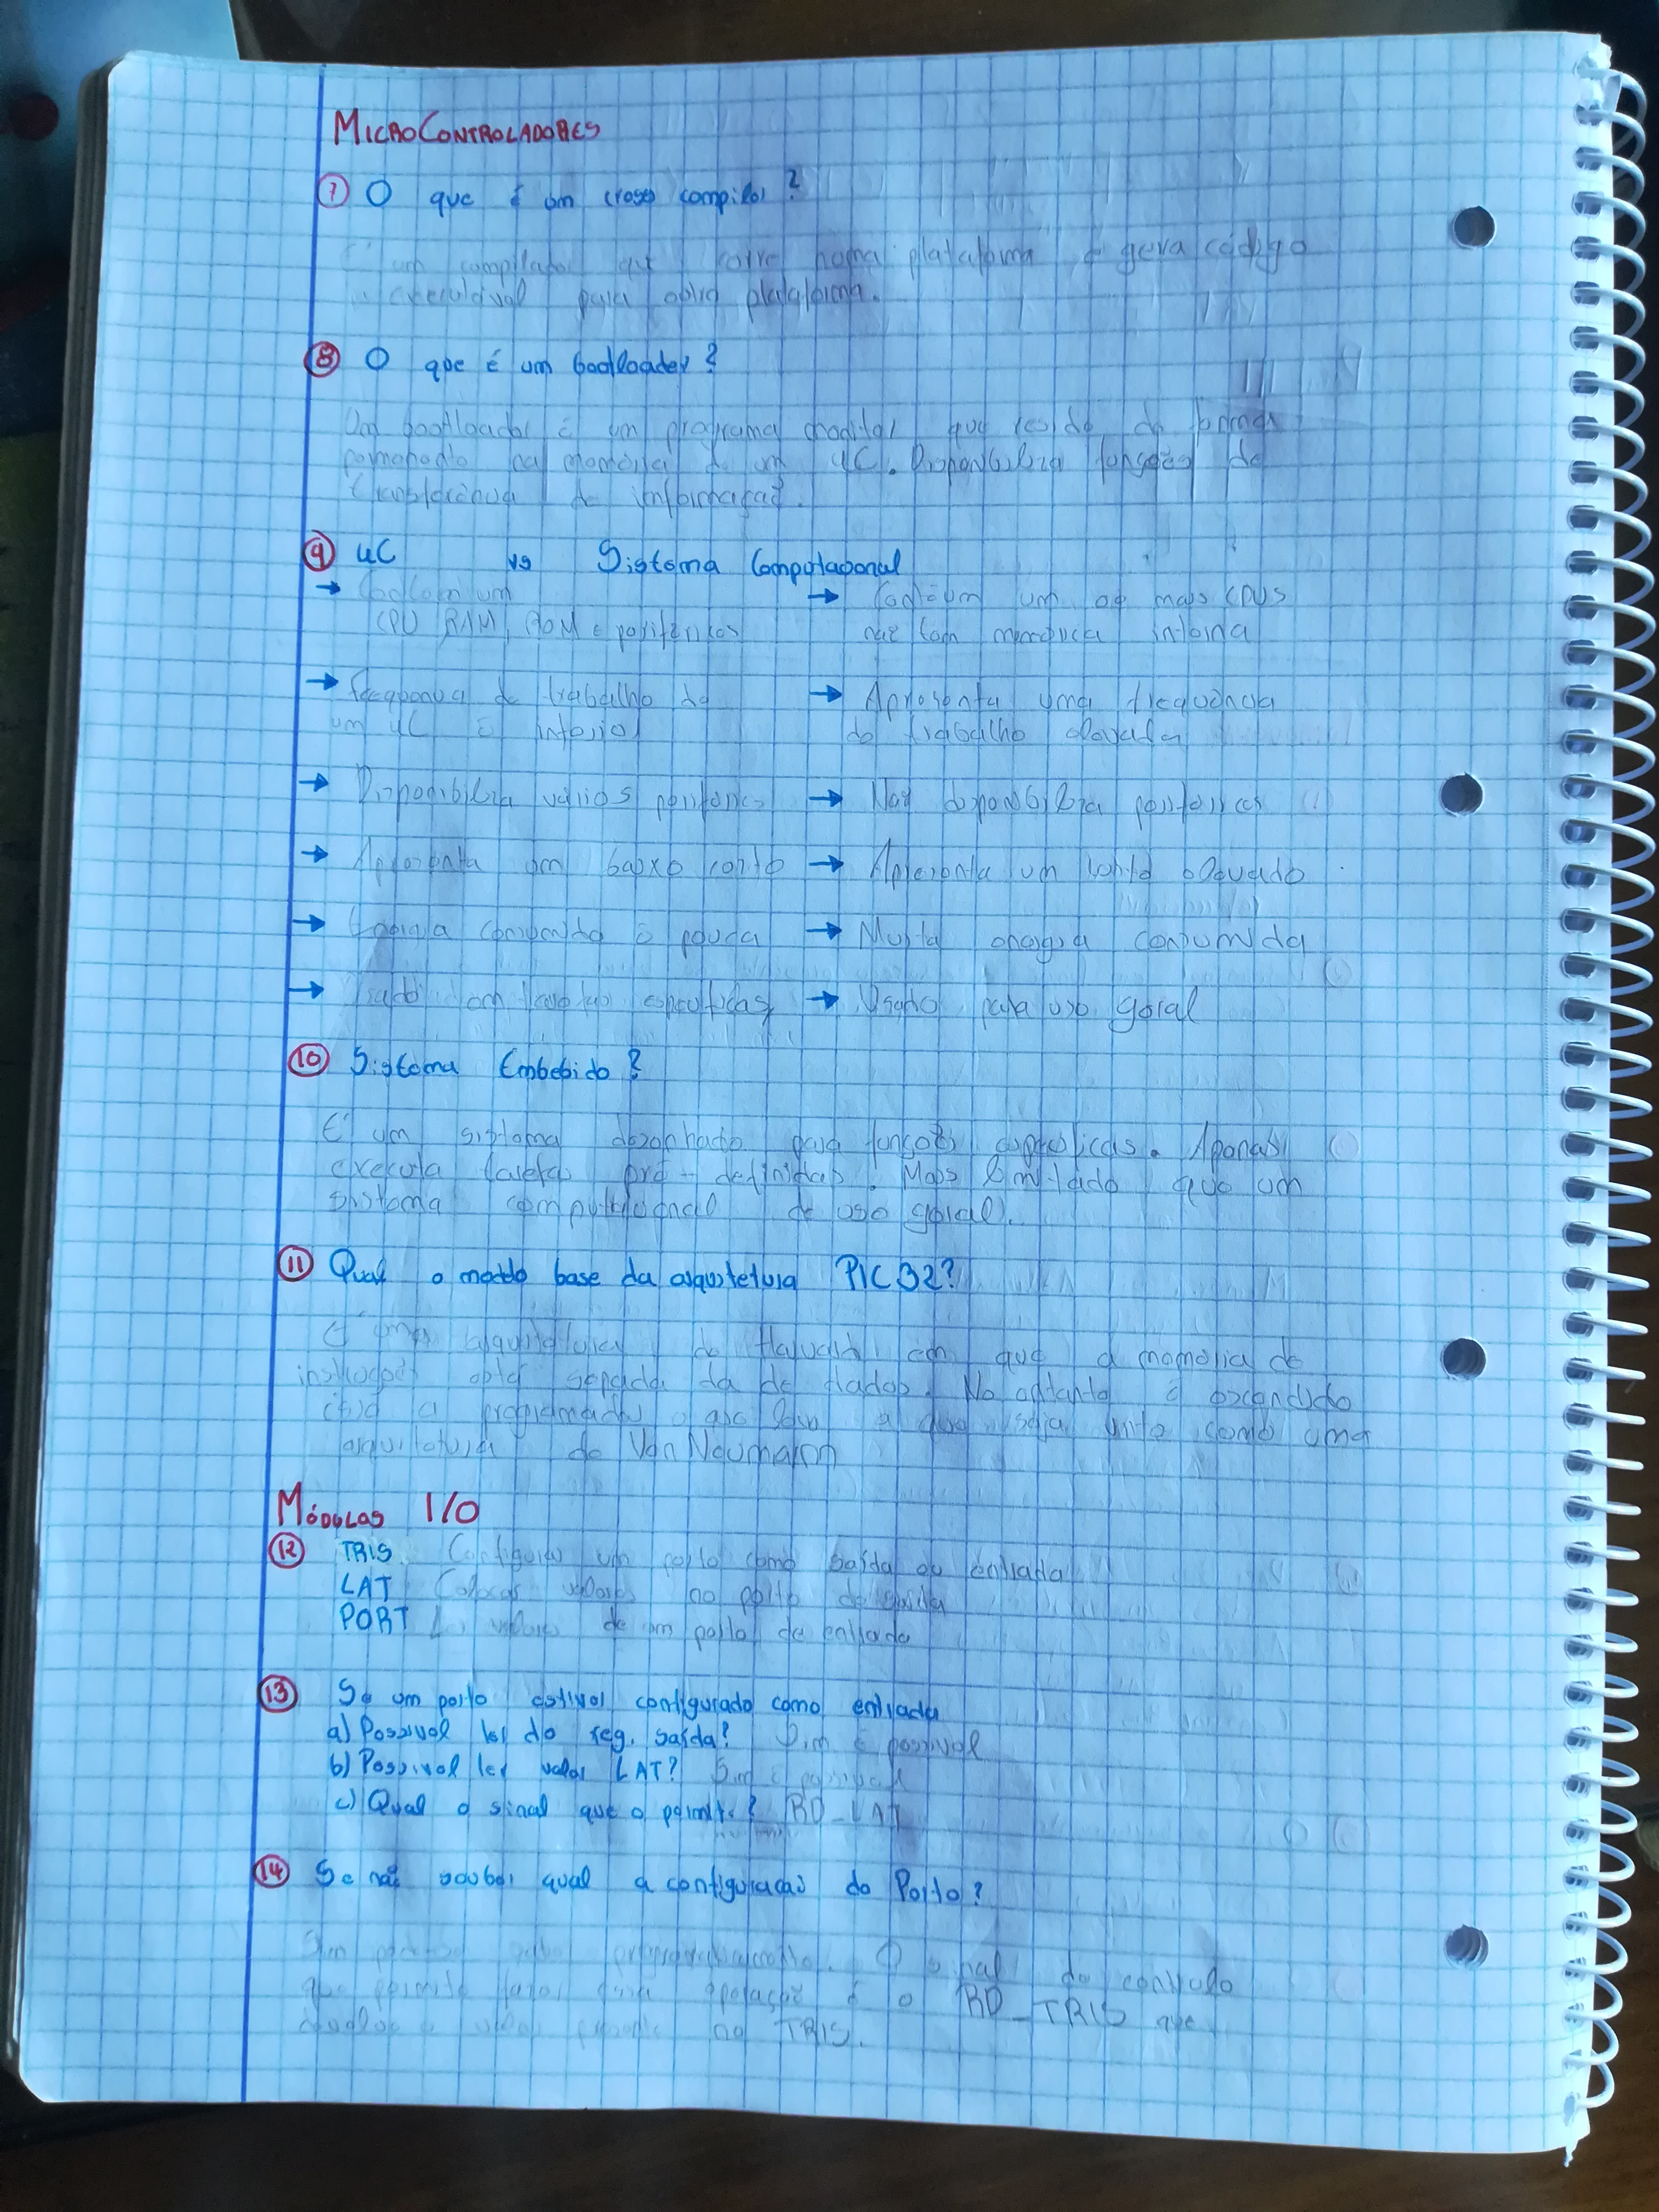 MICROCONTROLADORES
7 O que é um cross compiler?
É um compilador que corre numa plataforma e gera código
executável para outra plataforma.
8 O que é um bootloader?
Um bootloader é um programa que reside de forma
na memória de um uC. Disponibiliza funções de
transferência de informação.
9 uC vs Sistema Computacional
→ Contém um → Contém um ou mais CPUs
CPU RAM, ROM e periféricos não tem memória interna
→ Frequência de trabalho de → Apresenta uma frequência
um uC é inferior de trabalho elevada
→ Disponibiliza vários periféricos → Não disponibiliza periféricos
→ Apresenta um baixo custo → Apresenta um custo elevado
→ Energia consumida é pouca → Muita energia consumida
→ Usado em funções específicas → Usado para uso geral
10 Sistema Embebido?
É um sistema desenhado para funções específicas. Apenas
executa tarefas pré-definidas. Mais limitado que um
sistema computacional de uso geral.
11 Qual o modelo base da arquitetura PIC32?
É uma arquitetura de Harvard em que a memória de
instruções está separada da de dados. No entanto é escondido
isso a programador o que leva a que seja visto como uma
arquitetura de Von Neumann
MÓDULOS I/O
12 TRIS Configurar um porto como saída ou entrada
LAT Colocar valores no porto de saída
PORT Ler valores de um porto de entrada
13 Se um porto estiver configurado como entrada
a) Possivel ler do reg. saída? Sim é possivel
b) Possivel ler valor LAT? Sim é possivel
c) Qual o sinal que o permite? RD_LAT
14 Se não souber qual a configuração do Porto?
O sinal de controlo
que permite fazer essa operação é o RD_TRIS que
no TRIS.